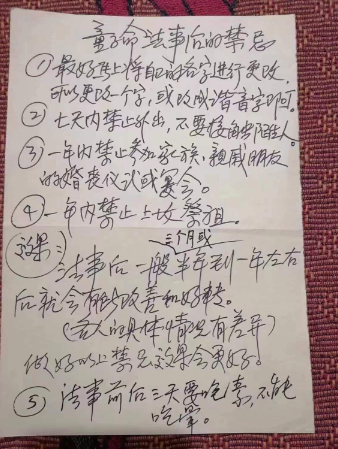 童子命法事后的禁忌
① 最好马上将自己的名字进行更改,
可以更改一个字,或改成谐音字即可.
② 七天内禁止外出,不要接触陌生人。
③ 一年内禁止参加家族,亲戚朋友
的婚丧仪式或宴会。
④ 一年内禁止上坟祭祖.
效果:
三个月或
法事后一般半年到一年左右
后就会有所改善和好转。
(各人的具体情况有差异)
做好以上禁忌效果会更好。
⑤ 法事前后三天要吃素,不能
吃荤。